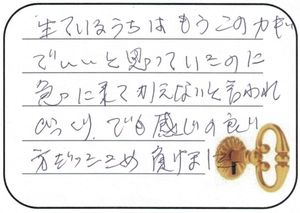 生ているうちはもうこのカギ
でいいと思っているのに
急に来てかえないと言われ
びっくり、でも感じの良い
方だったため負けまし